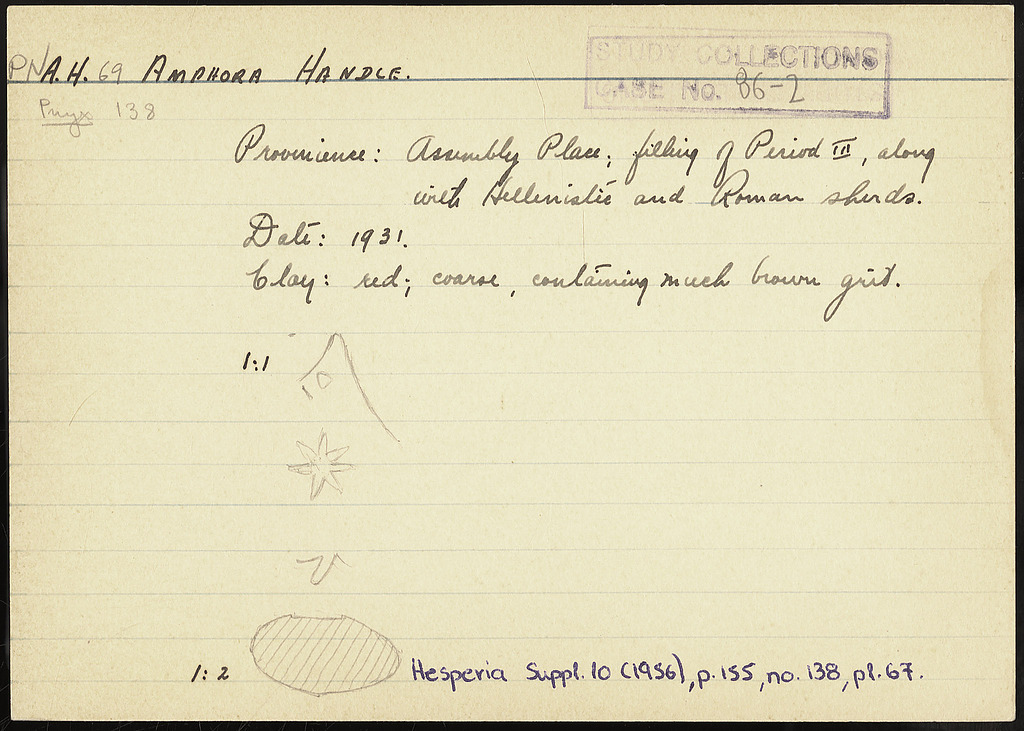 PN A.H. 69 AMPHORA HANDLE.
STUDY COLLECTIONS
CASE No. 86-2
Pnyx 138
Provenience: Assembly Place; filling of Period III, along
with Hellenistic and Roman sherds.
Date: 1931.
Clay: red; coarse, containing much brown grit.
1:1
1:2
Hesperia Suppl. 10 (1956), p. 155, no. 138, pl. 67.